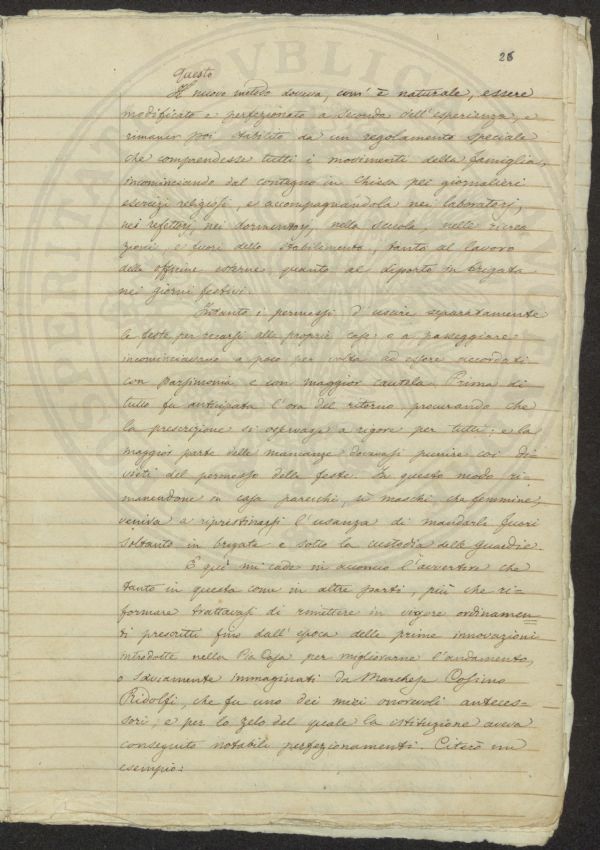 26
Questo
Il nuovo metodo doveva, com' è naturale, essere
modificato e perfezionato a seconda dell'esperienza, e
rimaner poi stabilito da un regolamento speciale
che comprendesse tutti i movimenti della famiglia,
incominciando dal contegno in Chiesa pei giornalieri
esercizi religiosi, e accompagnandola nei laboratorj,
nei refettorj, nei dormentorj, nella scuola, nelle ricrea
zioni e fuori dello stabilimento, tanto al lavoro
delle officine esterne, quanto al diporto in brigata
nei giorni festivi.
Intanto i permessi d'uscire separatamente
le feste per recarsi alle proprie case e a passeggiare
incominciarono a poco per volta ad essere accordati
con parsimonia e con maggior cautela. Prima di
tutto fu anticipata l'ora del ritorno, procurando che
la prescrizione si osservasse a rigore per tutti: e la
maggior parte delle mancanze dovevasi punire coi di-
vieti del permesso delle feste. In questo modo ri-
manendone in casa parecchi, sì maschi, che femmine,
veniva a ripristinarsi l'usanza di mandarli fuori
soltanto in brigata e sotto la custodia delle guardie.
E quì mi cade in acconcio l'avvertire che
tanto in questa come in altre parti, più che ri-
formare trattavasi di rimettere in vigore ordinamen-
ti prescritti fino dall'epoca delle prime innovazioni
introdotte nella Pia Casa per migliorarne l'andamento,
o saviamente immaginati da Marchese Cosimo
Ridolfi, che fu uno dei miei onorevoli anteces-
sori, e per lo zelo del quale la istituzione aveva
conseguito notabili perfezionamenti. Citerò un
esempio: